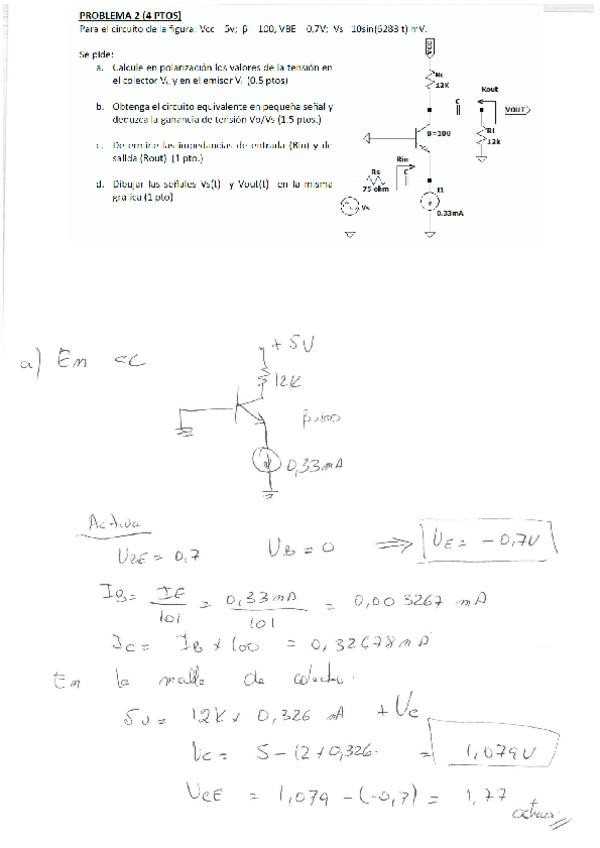 PROBLEMA 2 (4 PTOS)
Para el circuito de la figura: Vcc 5v; β 100, VBE 0,7V; Vs 10sin(6283 t) mV.
Se pide:
a. Calcule en polarización los valores de la tensión en
el colector Vc y en el emisor V (0.5 ptos)
b. Obtenga el circuito equivalente en pequeña señal y
deduzca la ganancia de tensión Vo/Vs (1.5 ptos.)
c. Determine las impedancias de entrada (Rin) y de
salida (Rout) (1 pto.)
d. Dibujar las señales Vs(t) y Vout(t) en la misma
gráfica (1 pto)
VCC
Rc
12K
Rout
C
VOUT
B=100
Rl
12k
Rin
Rs
C
75 ohm
Vs
I1
0.33mA
a) En cc
+ 5V
12K
β=100
0,33mA
Activa
VBE = 0,7
VB = 0 ⇒ VE = - 0,7V
IB = IE / 101 = 0,33mA / 101 = 0,003267 mA
IC = IB * 100 = 0,32678mA
En la malla de colector.
5v = 12K * 0,326 mA + Vc
Vc = 5 - 12 * 0,326 = 1,079V
VCE = 1,079 - (-0,7) = 1,77
activa